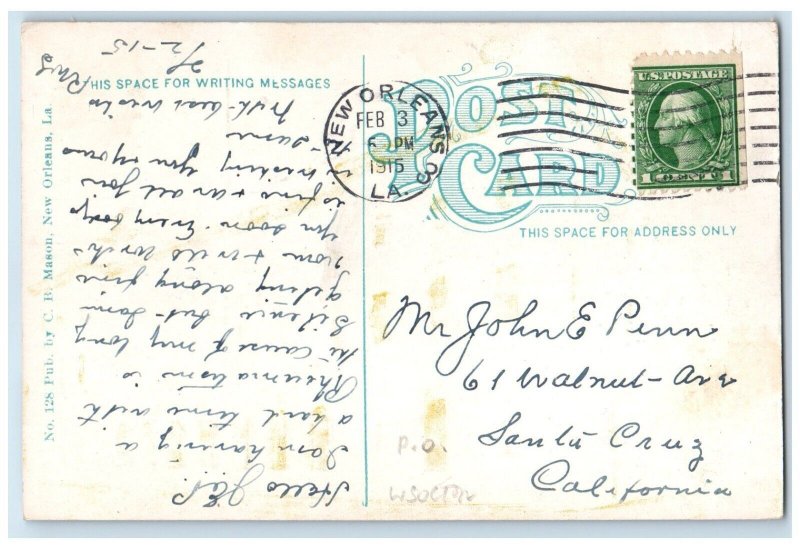 THIS SPACE FOR WRITING MESSAGES
POST CARD
THIS SPACE FOR ADDRESS ONLY
NEW ORLEANS
FEB 3
6 PM
1915
LA.
U.S. POSTAGE
1 CENT 1
No. 128 Pub. by C. B. Mason, New Orleans, La
2/2-15
Hello J.E.P.
I am having a
hard time with
Rheumatism is
the cause of my long
Silence but I am
geting along fine
now & will write
you soon. Every body
is fine & are all Joy
in wishing you
same
With best wishes
Mr John E Penn
61 Walnut-Ave
Santa Cruz
California
P.O.